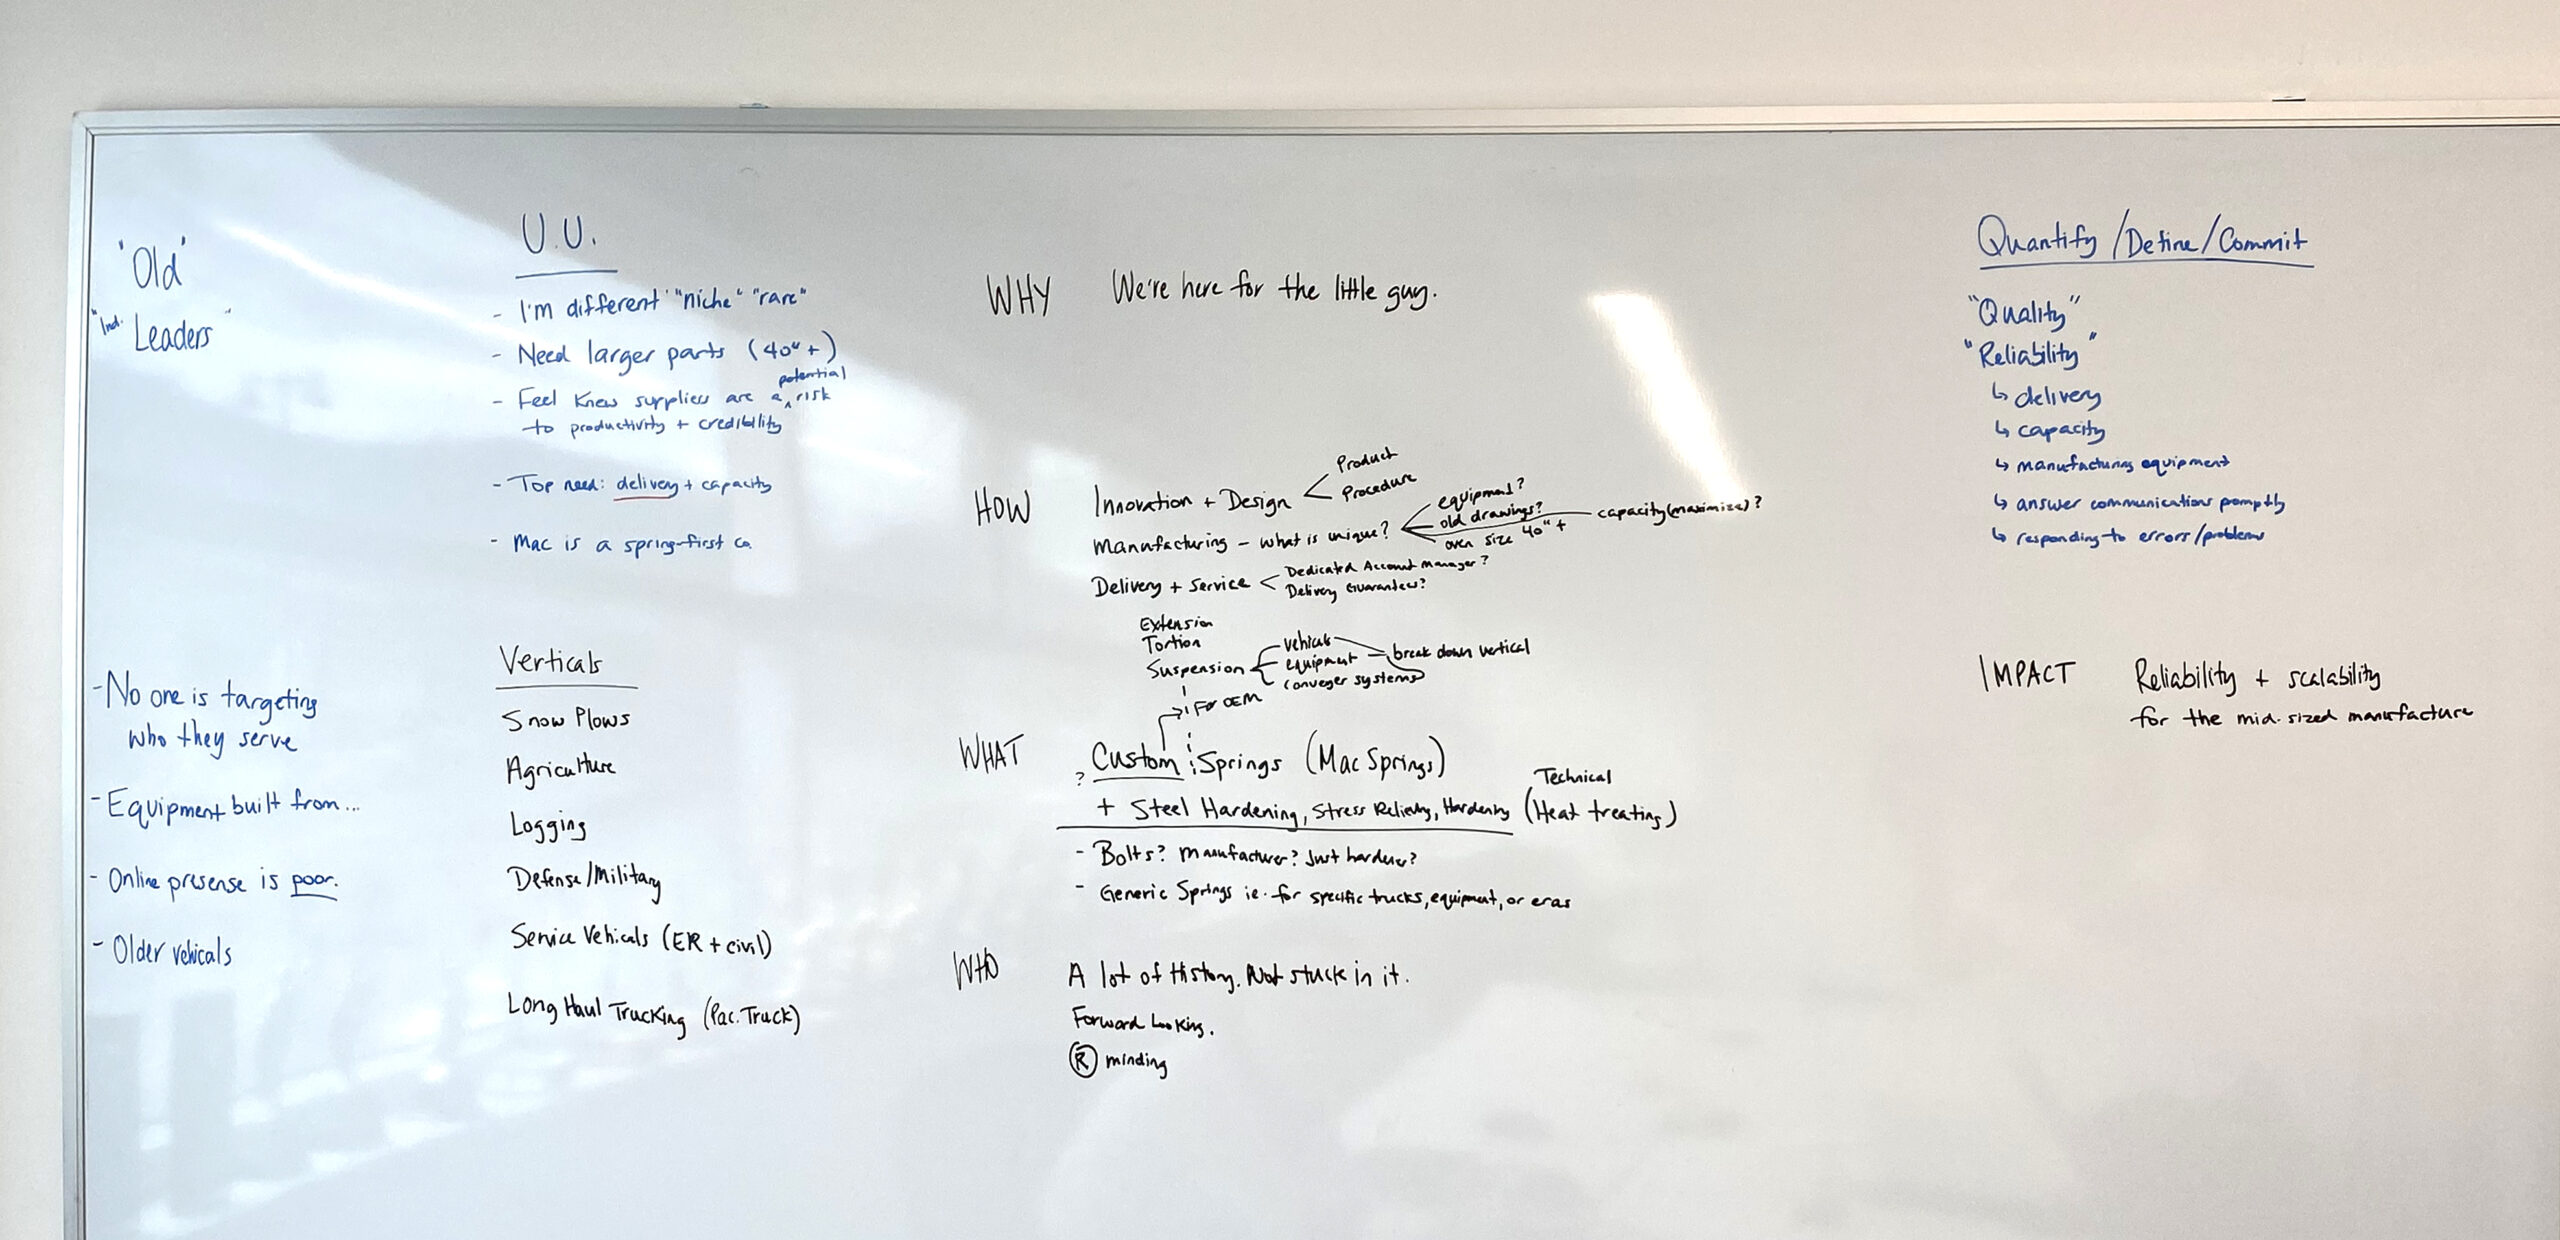 "Old"
"Ind. Leaders"
- No one is targeting
who they serve
- Equipment built from...
- Online presense is poor.
- Older vehicals
U.U.
- I'm different "niche" "rare"
- Need larger parts (40"+)
potential
- Feel Knew suppliers are a ^ risk
to productivity + credibility
- Top need: delivery + capacity
- Mac is a spring-first co.
Verticals
Snow Plows
Agriculture
Logging
Defense/Military
Service Vehicals (ER + civil)
Long Haul Trucking (Pac. Truck)
WHY We're here for the little guy.
HOW Innovation + Design
Product
Procedure
Manufacturing - what is unique?
equipment?
old drawings?
oven size 40"+
capacity (maximize)?
Delivery + Service
Dedicated Account Manager?
Delivery Guarantees?
Extension
Tortion
Suspension
vehicals
equipment
conveyer systems
break down vertical
For OEM
WHAT ? Custom Springs (Mac Springs)
+ Steel Hardening, Stress Relieving, Hardening (Heat treating)
Technical
- Bolts? Manufacturer? Just hardener?
- Generic Springs ie. for specific trucks, equipment, or eras
WHO A lot of History. Not stuck in it.
Forward Looking.
R minding
Quantify/Define/Commit
"Quality"
"Reliability"
↳ delivery
↳ capacity
↳ manufacturing equipment
↳ answer communications promptly
↳ responding to errors/problems
IMPACT Reliability + scalability
for the mid-sized manufacture